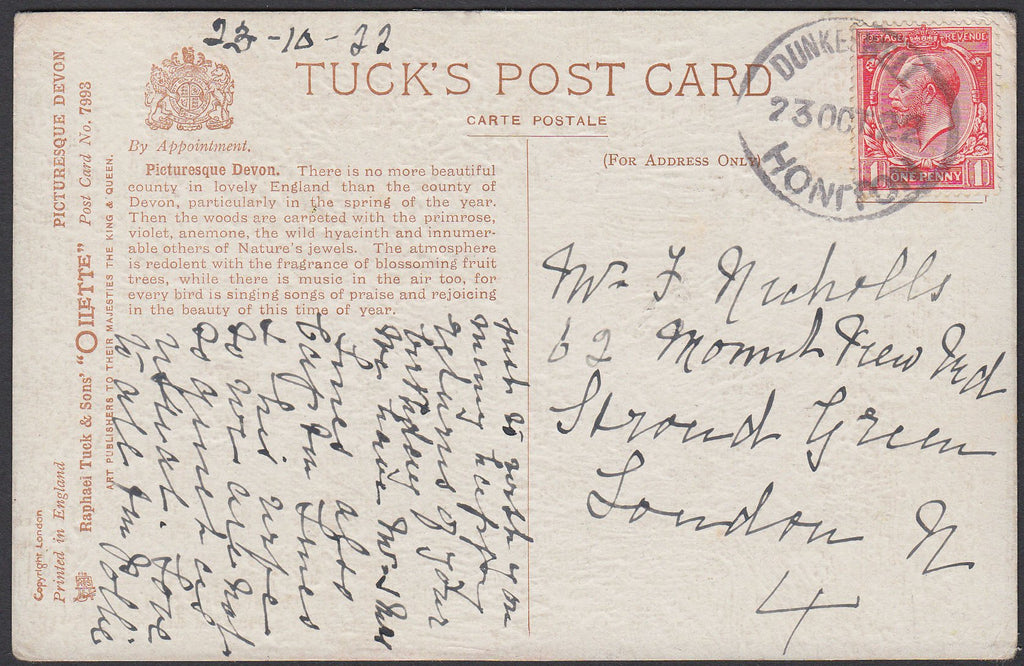 23-10-22
TUCK'S POST CARD
CARTE POSTALE
(FOR ADDRESS ONLY)
By Appointment.
Picturesque Devon. There is no more beautiful
county in lovely England than the county of
Devon, particularly in the spring of the year.
Then the woods are carpeted with the primrose,
violet, anemone, the wild hyacinth and innumer-
able others of Nature's jewels. The atmosphere
is redolent with the fragrance of blossoming fruit
trees, while there is music in the air too, for
every bird is singing songs of praise and rejoicing
in the beauty of this time of year.
PICTURESQUE DEVON
Post Card No. 7993
ART PUBLISHERS TO THEIR MAJESTIES THE KING & QUEEN.
Raphael Tuck & Sons' "OILETTE"
Printed in England
Copyright London
POSTAGE REVENUE
1 ONE PENNY 1
DUNKES
23 OCT 22
HONITON
Mr F Nicholls
62 Mount View Rd
Stroud Green
London N
4
Just to wish you
many happy
returns of your
birthday
We have Mrs
Jones also
Captn Jones
& his wife
so we are not
so quiet as
usual. Love
to all from